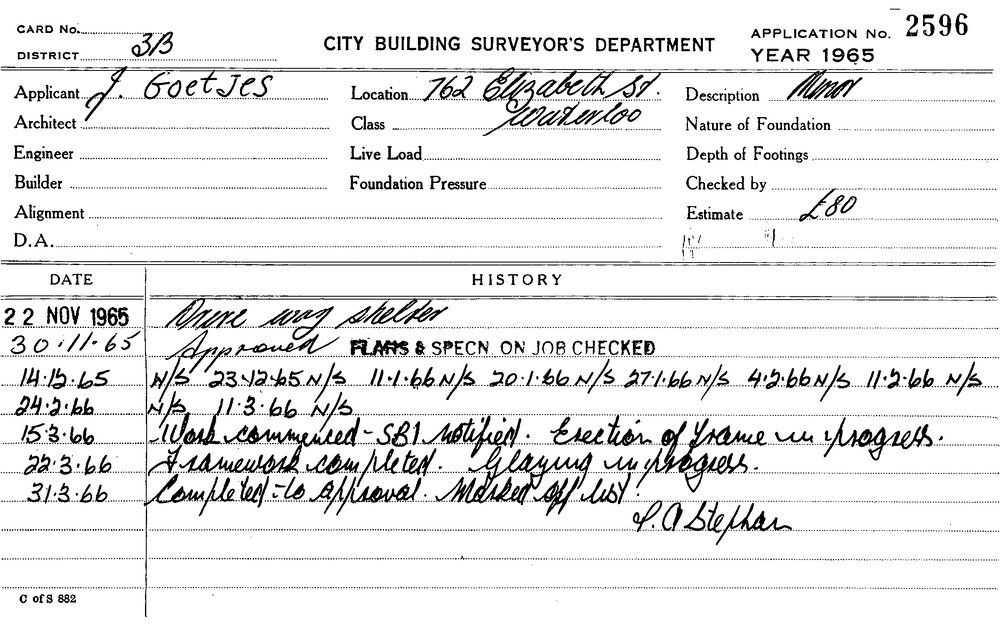 CARD No.
DISTRICT 3B
CITY BUILDING SURVEYOR'S DEPARTMENT
APPLICATION No. 2596
YEAR 1965
Applicant J. Goetjes
Location 762 Elizabeth St.
Waterloo
Description Minor
Architect
Class
Nature of Foundation
Engineer
Live Load
Depth of Footings
Builder
Foundation Pressure
Checked by
Alignment
Estimate £80
D.A.
DATE HISTORY
22 NOV 1965 Drive way shelter
30.11.65 Approved PLANS & SPECN. ON JOB CHECKED
14.12.65 N/S 23.12.65 N/S 11.1.66 N/S 20.1.66 N/S 27.1.66 N/S 4.2.66 N/S 11.2.66 N/S
24.2.66 N/S 11.3.66 N/S
15.3.66 Work commenced - SB1 notified. Erection of frame in progress.
22.3.66 Framework completed. Glazing in progress.
31.3.66 Completed - to approval. Marked off list.
A Stephan
C of S 882